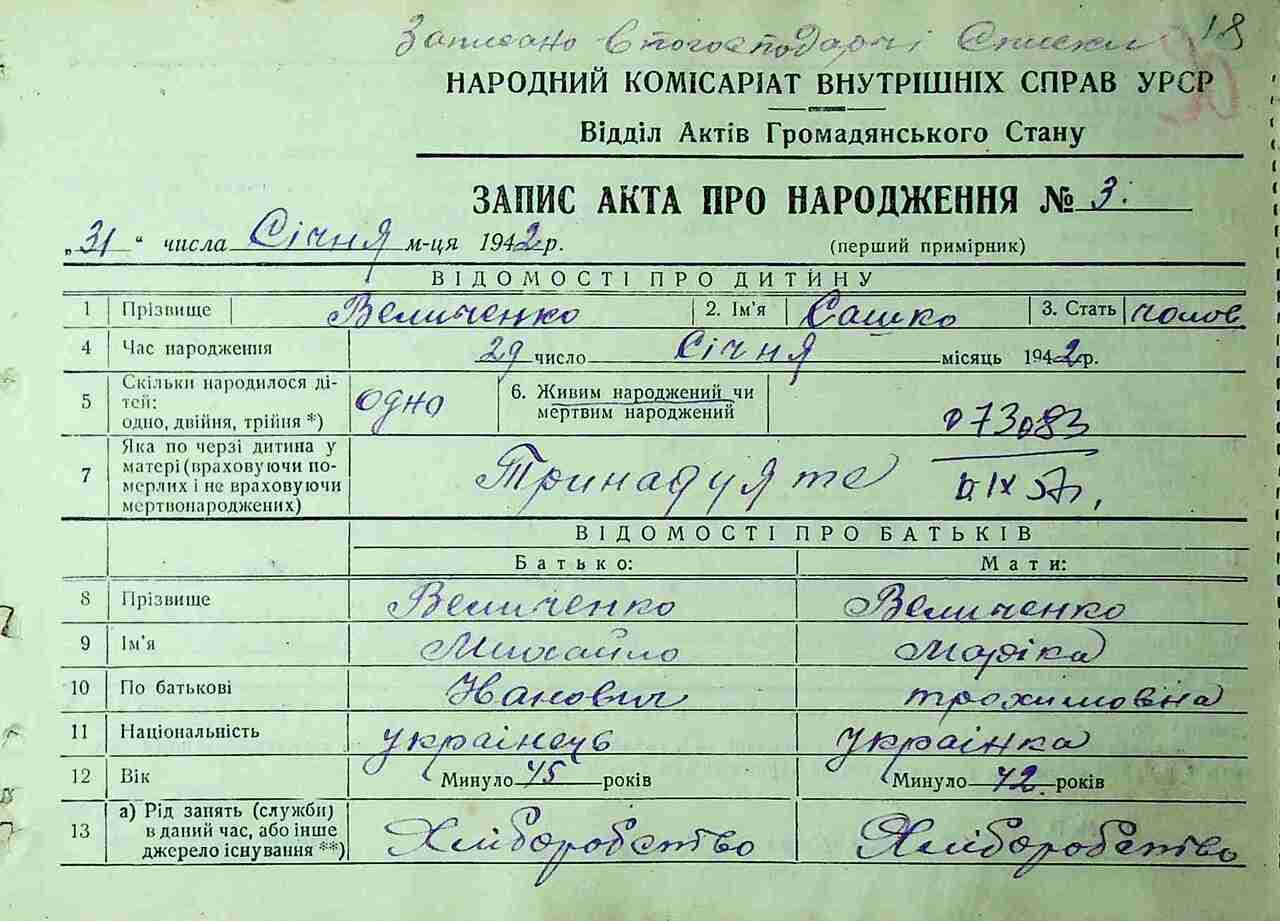 Записано в погосподарчі списки 18
НАРОДНИЙ КОМІСАРІАТ ВНУТРІШНІХ СПРАВ УРСР
Відділ Актів Громадянського Стану
ЗАПИС АКТА ПРО НАРОДЖЕННЯ № 3.
„31“ числа Січня м-ця 1942 р. (перший примірник)
ВІДОМОСТІ ПРО ДИТИНУ
1 Прізвище Величенко 2. Ім'я Сашко 3. Стать чолов
4 Час народження 29 число Січня місяць 1942 р.
5 Скільки народилося ді-
тей:
одно, двійня, трійня *) одно 6. Живим народжений чи
мертвим народжений
073083
7 Яка по черзі дитина у
матері (враховуючи по-
мерлих і не враховуючи
мертвонароджених) Тринадцяте
ІХ 57р.
ВІДОМОСТІ ПРО БАТЬКІВ
Батько: Мати:
8 Прізвище Величенко Величенко
9 Ім'я Михайло
10 По батькові Іванович трохимовна
11 Національність українець українка
12 Вік Минуло 45 років Минуло 42. років
13 а) Рід занять (служби)
в даний час, або інше
джерело існування **) Хліборобство Хліборобство